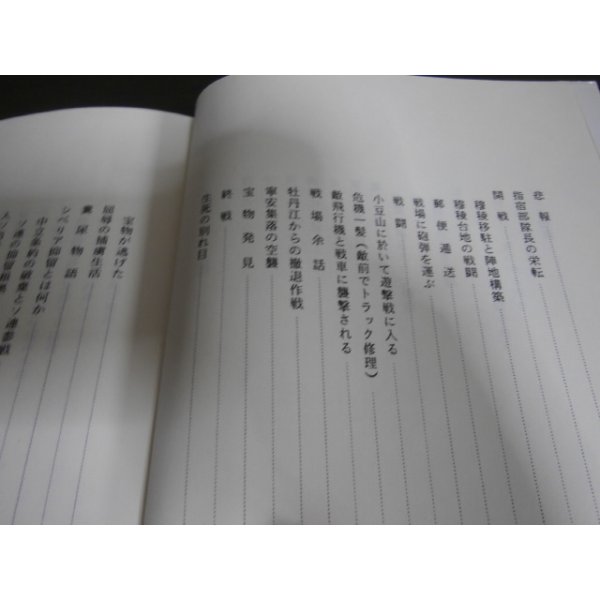 悲報
指宿部隊長の栄転
開戦
穆稜移駐と陣地構築
穆稜台地の戦闘
郵便逓送
戦場に砲弾を運ぶ
戦闘
小豆山に於いて遊撃戦に入る
危機一髪（敵前でトラック修理）
敵飛行機と戦車に襲撃される
戦場余話
牡丹江からの撤退作戦
寧安集落の空襲
宝物発見
終戦
生死の別れ目
宝物が逃げた
屈辱の捕虜生活
糞尿物語
シベリア抑留とは何か
中立条約の破棄とソ連参戦
ソ連の抑留